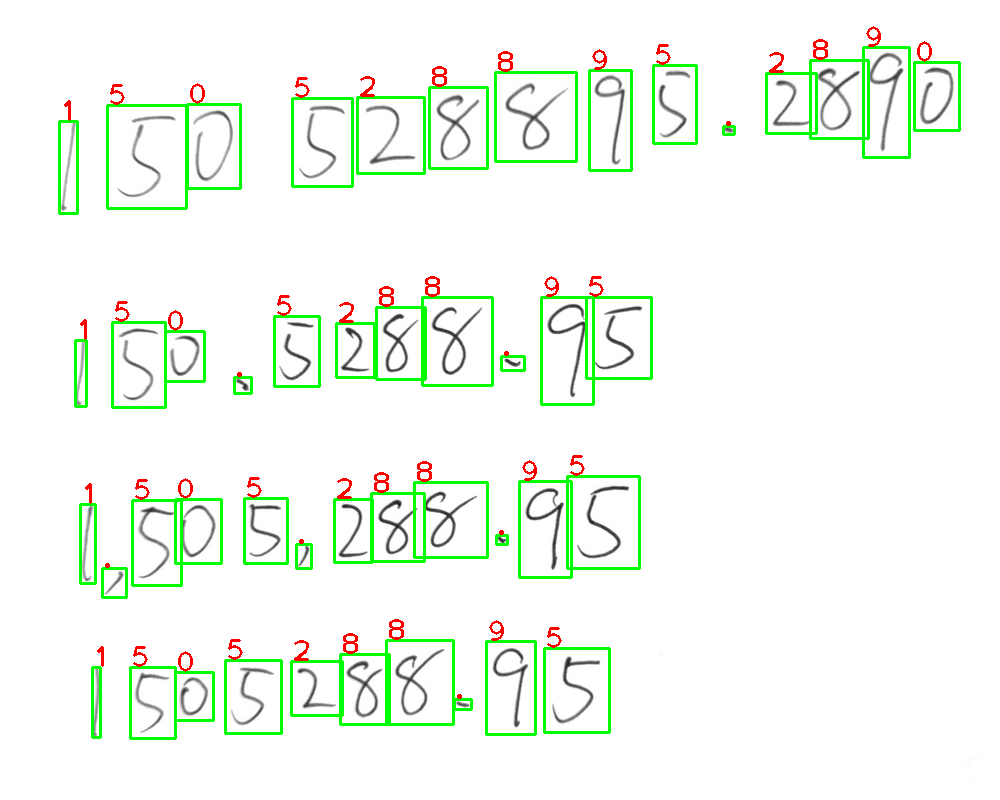 1 5 0 5 2 8 8 9 5 . 2 8 9 0
1 50 528895.2890
1 5 0 . 5 2 8 8 . 9 5
1 50.5288.95
1 . 5 0 5 . 2 8 8 . 9 5
1,505,288.95
1 5 0 5 2 8 8 . 9 5
1505288.95